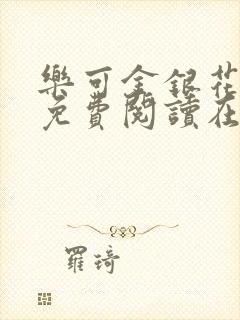 樂可金銀花
免費閱讀在
羅琦